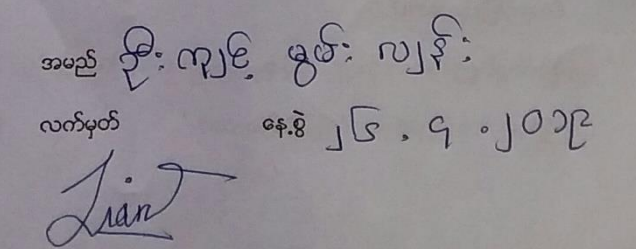 အမည် ဦး ကျင့် မွမ်း လျန်း
လက်မှတ် နေ့စွဲ ၂၆.၄.၂၀၁၉
Lian